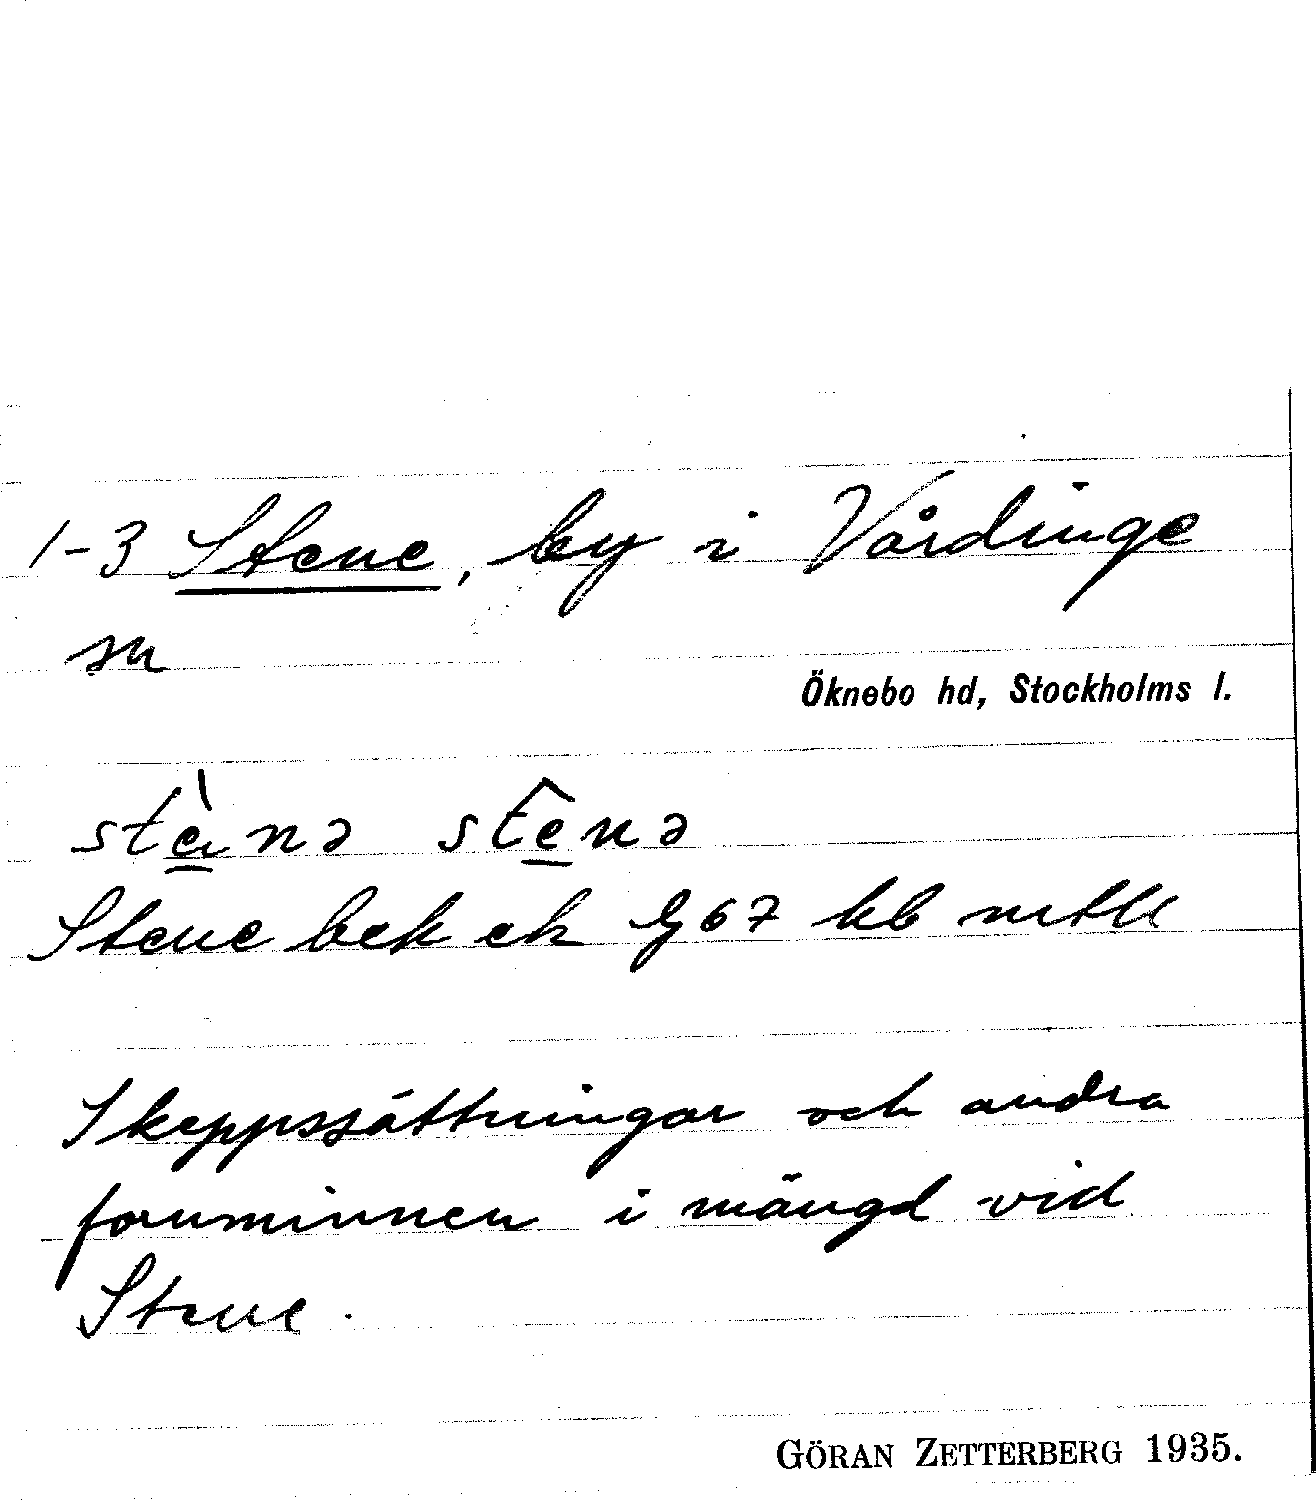 1-3 Stene, by i Vårdinge
sn
Öknebo hd, Stockholms l.
stènə stênə
Stene bek ek G67 kb mtll
Skeppssättningar och andra
fornminnen i mängd vid
Stene.
GÖRAN ZETTERBERG 1935.